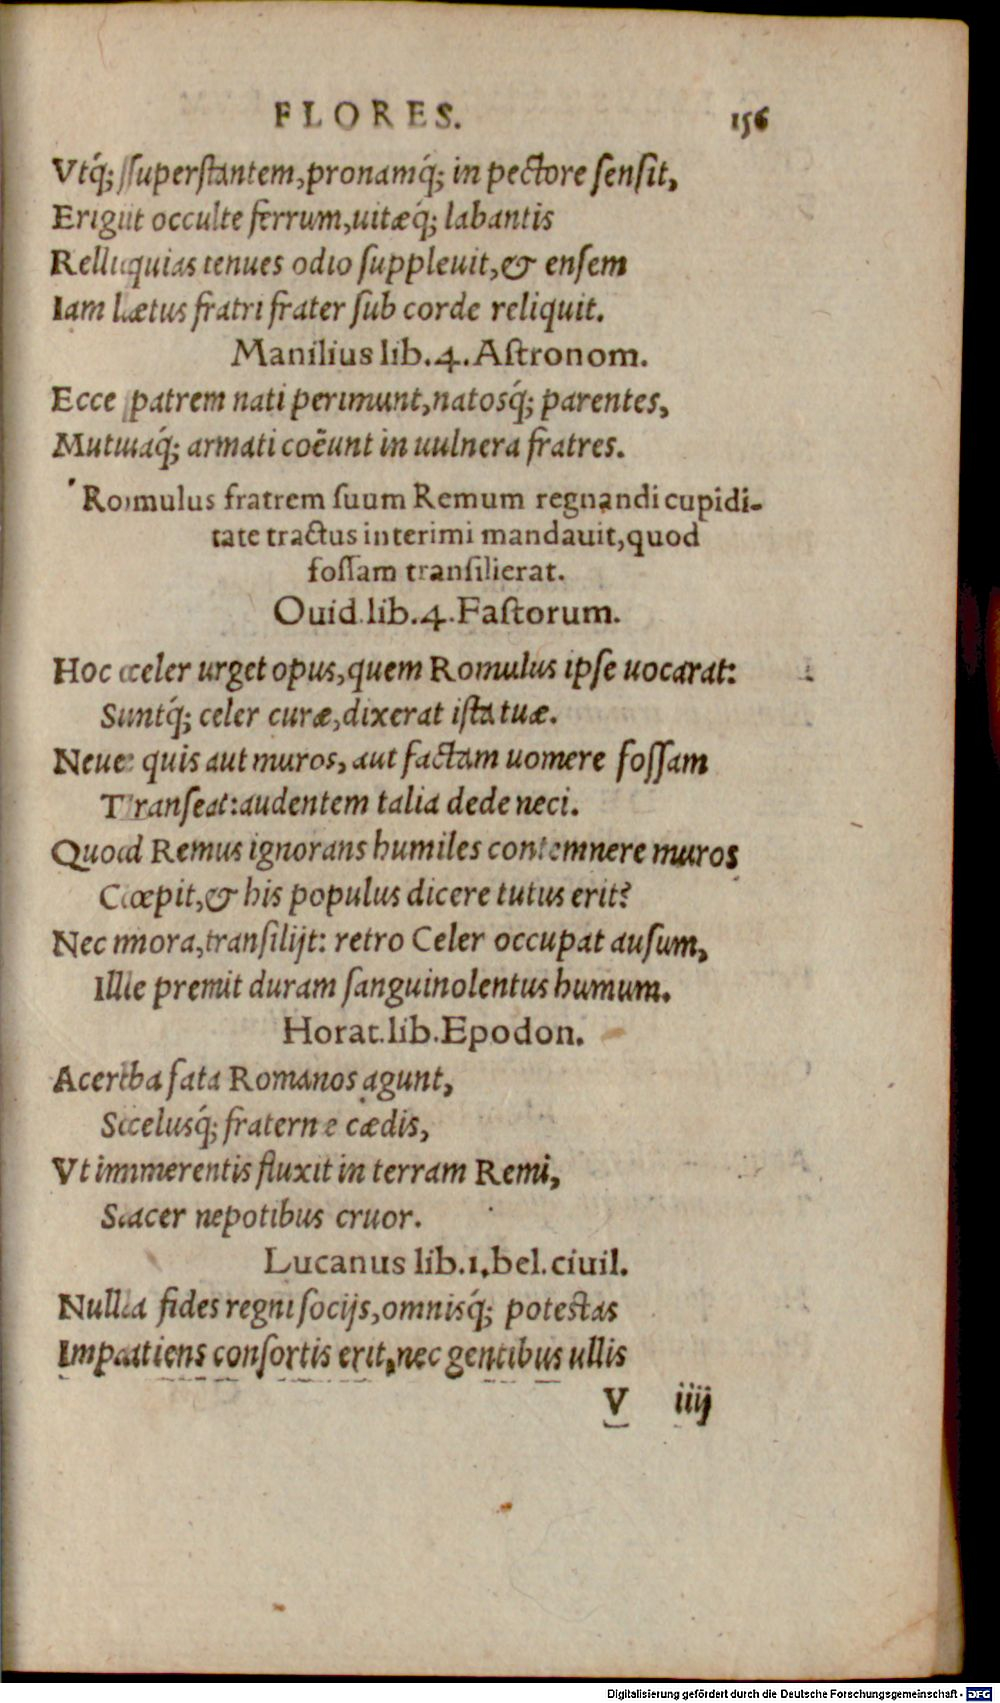 FLORES. 156
Vtq́; superstantem, pronamq́; in pectore sensit,
Erigit occulte ferrum, uitæq́; labantis
Relliquias tenues odio suppleuit, & ensem
Iam lætus fratri frater sub corde reliquit.
Manilius lib. 4. Astronom.
Ecce patrem nati perimunt, natosq́; parentes,
Mutuaq́; armati coëunt in uulnera fratres.
Romulus fratrem suum Remum regnandi cupidi-
tate tractus interimi mandauit, quod
fossam transilierat.
Ouid. lib. 4. Fastorum.
Hoc celer urget opus, quem Romulus ipse uocarat:
Suntq́; celer curæ, dixerat ista tuæ.
Neue quis aut muros, aut factam uomere fossam
Transeat: audentem talia dede neci.
Quod Remus ignorans humiles contemnere muros
Cœpit, & his populus dicere tutus erit?
Nec mora, transilijt: retro Celer occupat ausum,
Ille premit duram sanguinolentus humum.
Horat. lib. Epodon.
Acerba fata Romanos agunt,
Scelusq́; fraternę cædis,
Vt immerentis fluxit in terram Remi,
Sacer nepotibus cruor.
Lucanus lib. 1. bel. ciuil.
Nulla fides regni socijs, omnisq́; potestas
Impatiens consortis erit, nec gentibus ullis
V iiij
Digitalisierung gefördert durch die Deutsche Forschungsgemeinschaft - DFG